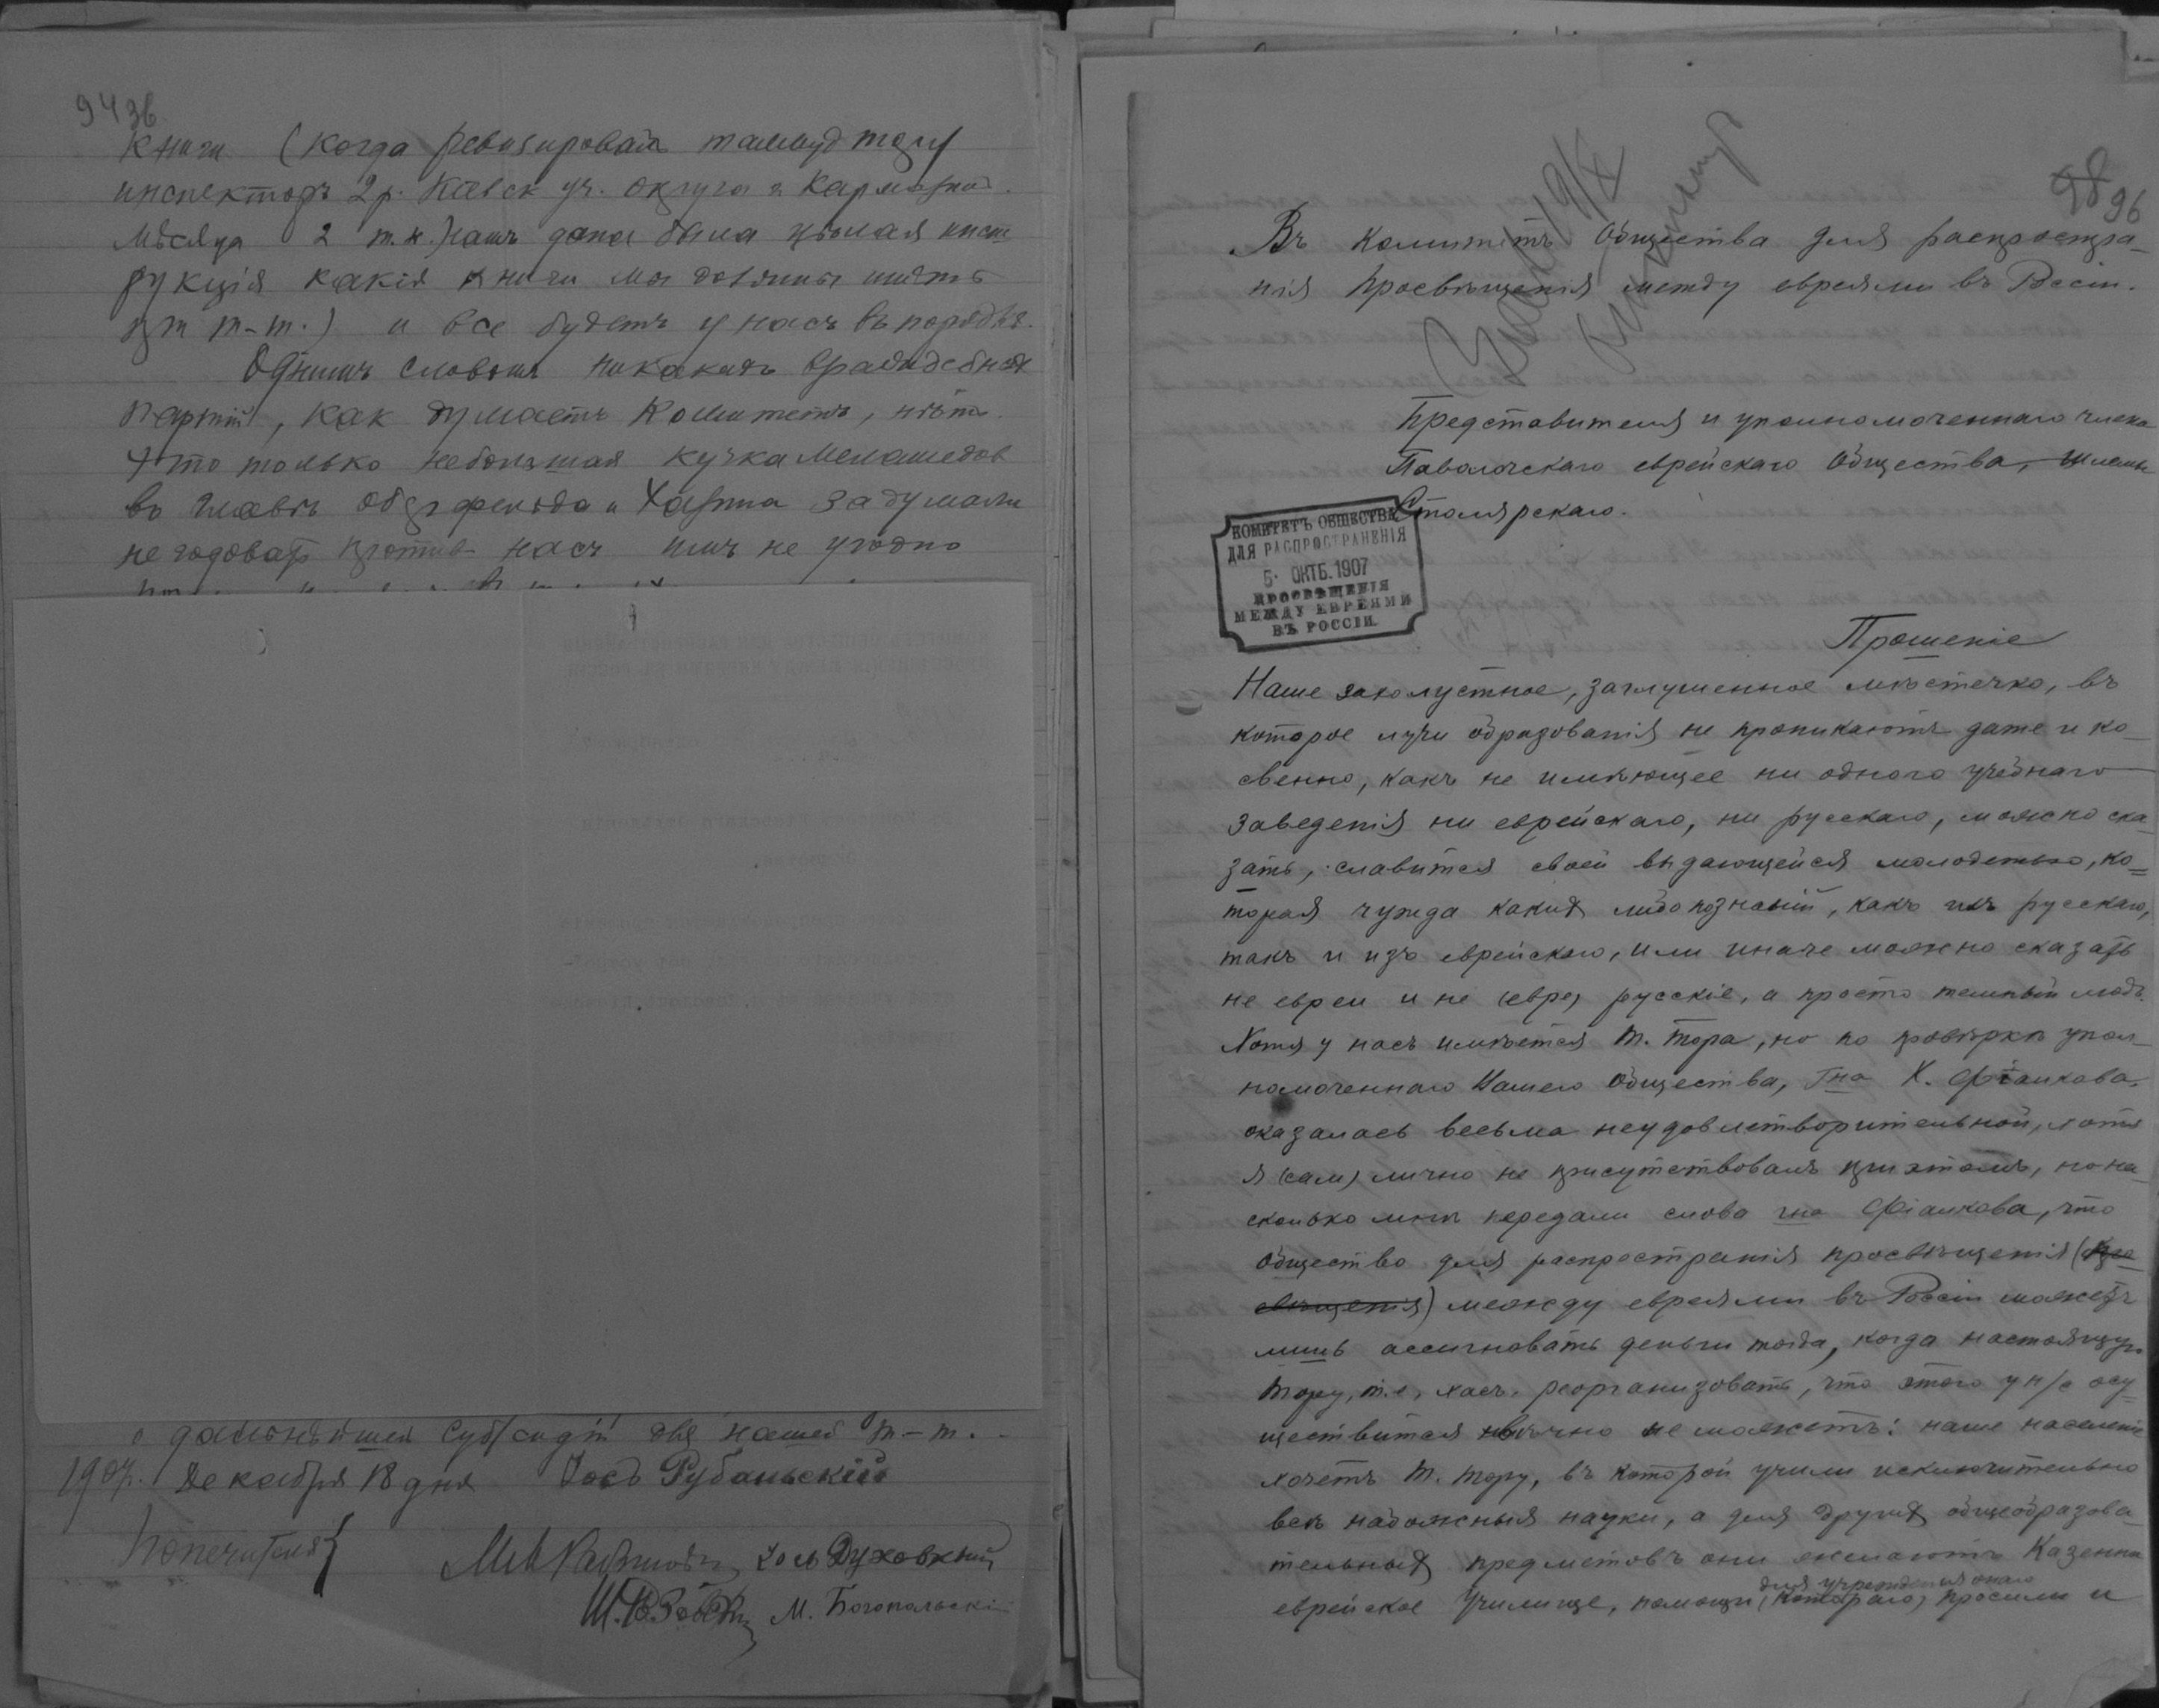 943б
книги (когда ревизировал талмуд тору
инспекторъ 2 р. Кіевск уч. округа г.
Мѣсяца 2 т. н.) намъ дана была цѣлая инст
рукція какія книги мы должны имѣть
при т-т.) и все будетъ у насъ въ порядкѣ.
Однимъ словомъ никакихъ враждебныхъ
партій, как думаетъ Комитетъ, нѣтъ.
Это только небольшая кучка Меламедов
во главѣ и задумали
негодовать против насъ имъ не угодно
о дальнѣйшей субсидіи для нашей т-т.
1907. Декабря 18 дня Іосъ Рубаньскій
Попечителя
Духовный
М. Богопольскій
98 96
Въ Комитетъ Общества для распростра-
нія Просвѣщенія между евреями въ Россіи.
Представителя и уполномоченнаго члена
Паволочскаго еврейскаго Общества, Шлемы
Столярскаго.
КОМИТЕТЪ ОБЩЕСТВА
ДЛЯ РАСПРОСТРАНЕНІЯ
5· ОКТБ. 1907
ПРОСВѢЩЕНІЯ
МЕЖДУ ЕВРЕЯМИ
ВЪ РОССІИ.
Прошеніе
Наше захолустное, заглушенное мѣстечко, въ
которое лучи образованія не проникаютъ даже и ко-
свенно, какъ не имѣющее ни одного учебнаго
заведенія ни еврейскаго, ни русскаго, можно ска-
зать, славится своей выдающейся молодежью, ко=
торая чужда какихъ либо познаній, какъ изъ русскаго,
такъ и изъ еврейскаго, или иначе можно сказать
не евреи и не (евре) русскіе, а просто темный людъ.
Хотя у насъ имѣется Т. Тора, но по провѣркѣ упол-
номоченнаго Нашего Общества, Гна Х. Фіалкова.
оказалась весьма неудовлетворительной, хотя
я (сам) лично не присутствовалъ при этомъ, но на-
сколько мнѣ передали слова гна Фіалкова, что
Общество для распространія просвѣщенія (про-
свѣщенія) между евреями въ Россіи можетъ
лишь ассигновать деньги тогда, когда настоящую
Тору, т.е. хась. реорганизовать, что этого у н/с осу-
ществится вѣчно не можетъ: наше населеніе
хочетъ Т. Тору, въ которой учили исключительно
всѣ набожныя науки, а для другихъ общеобразова-
тельныхъ предметовъ они желаютъ Казенно
для учрежденія онаго
еврейское Училище, помощи (котораго) просили и